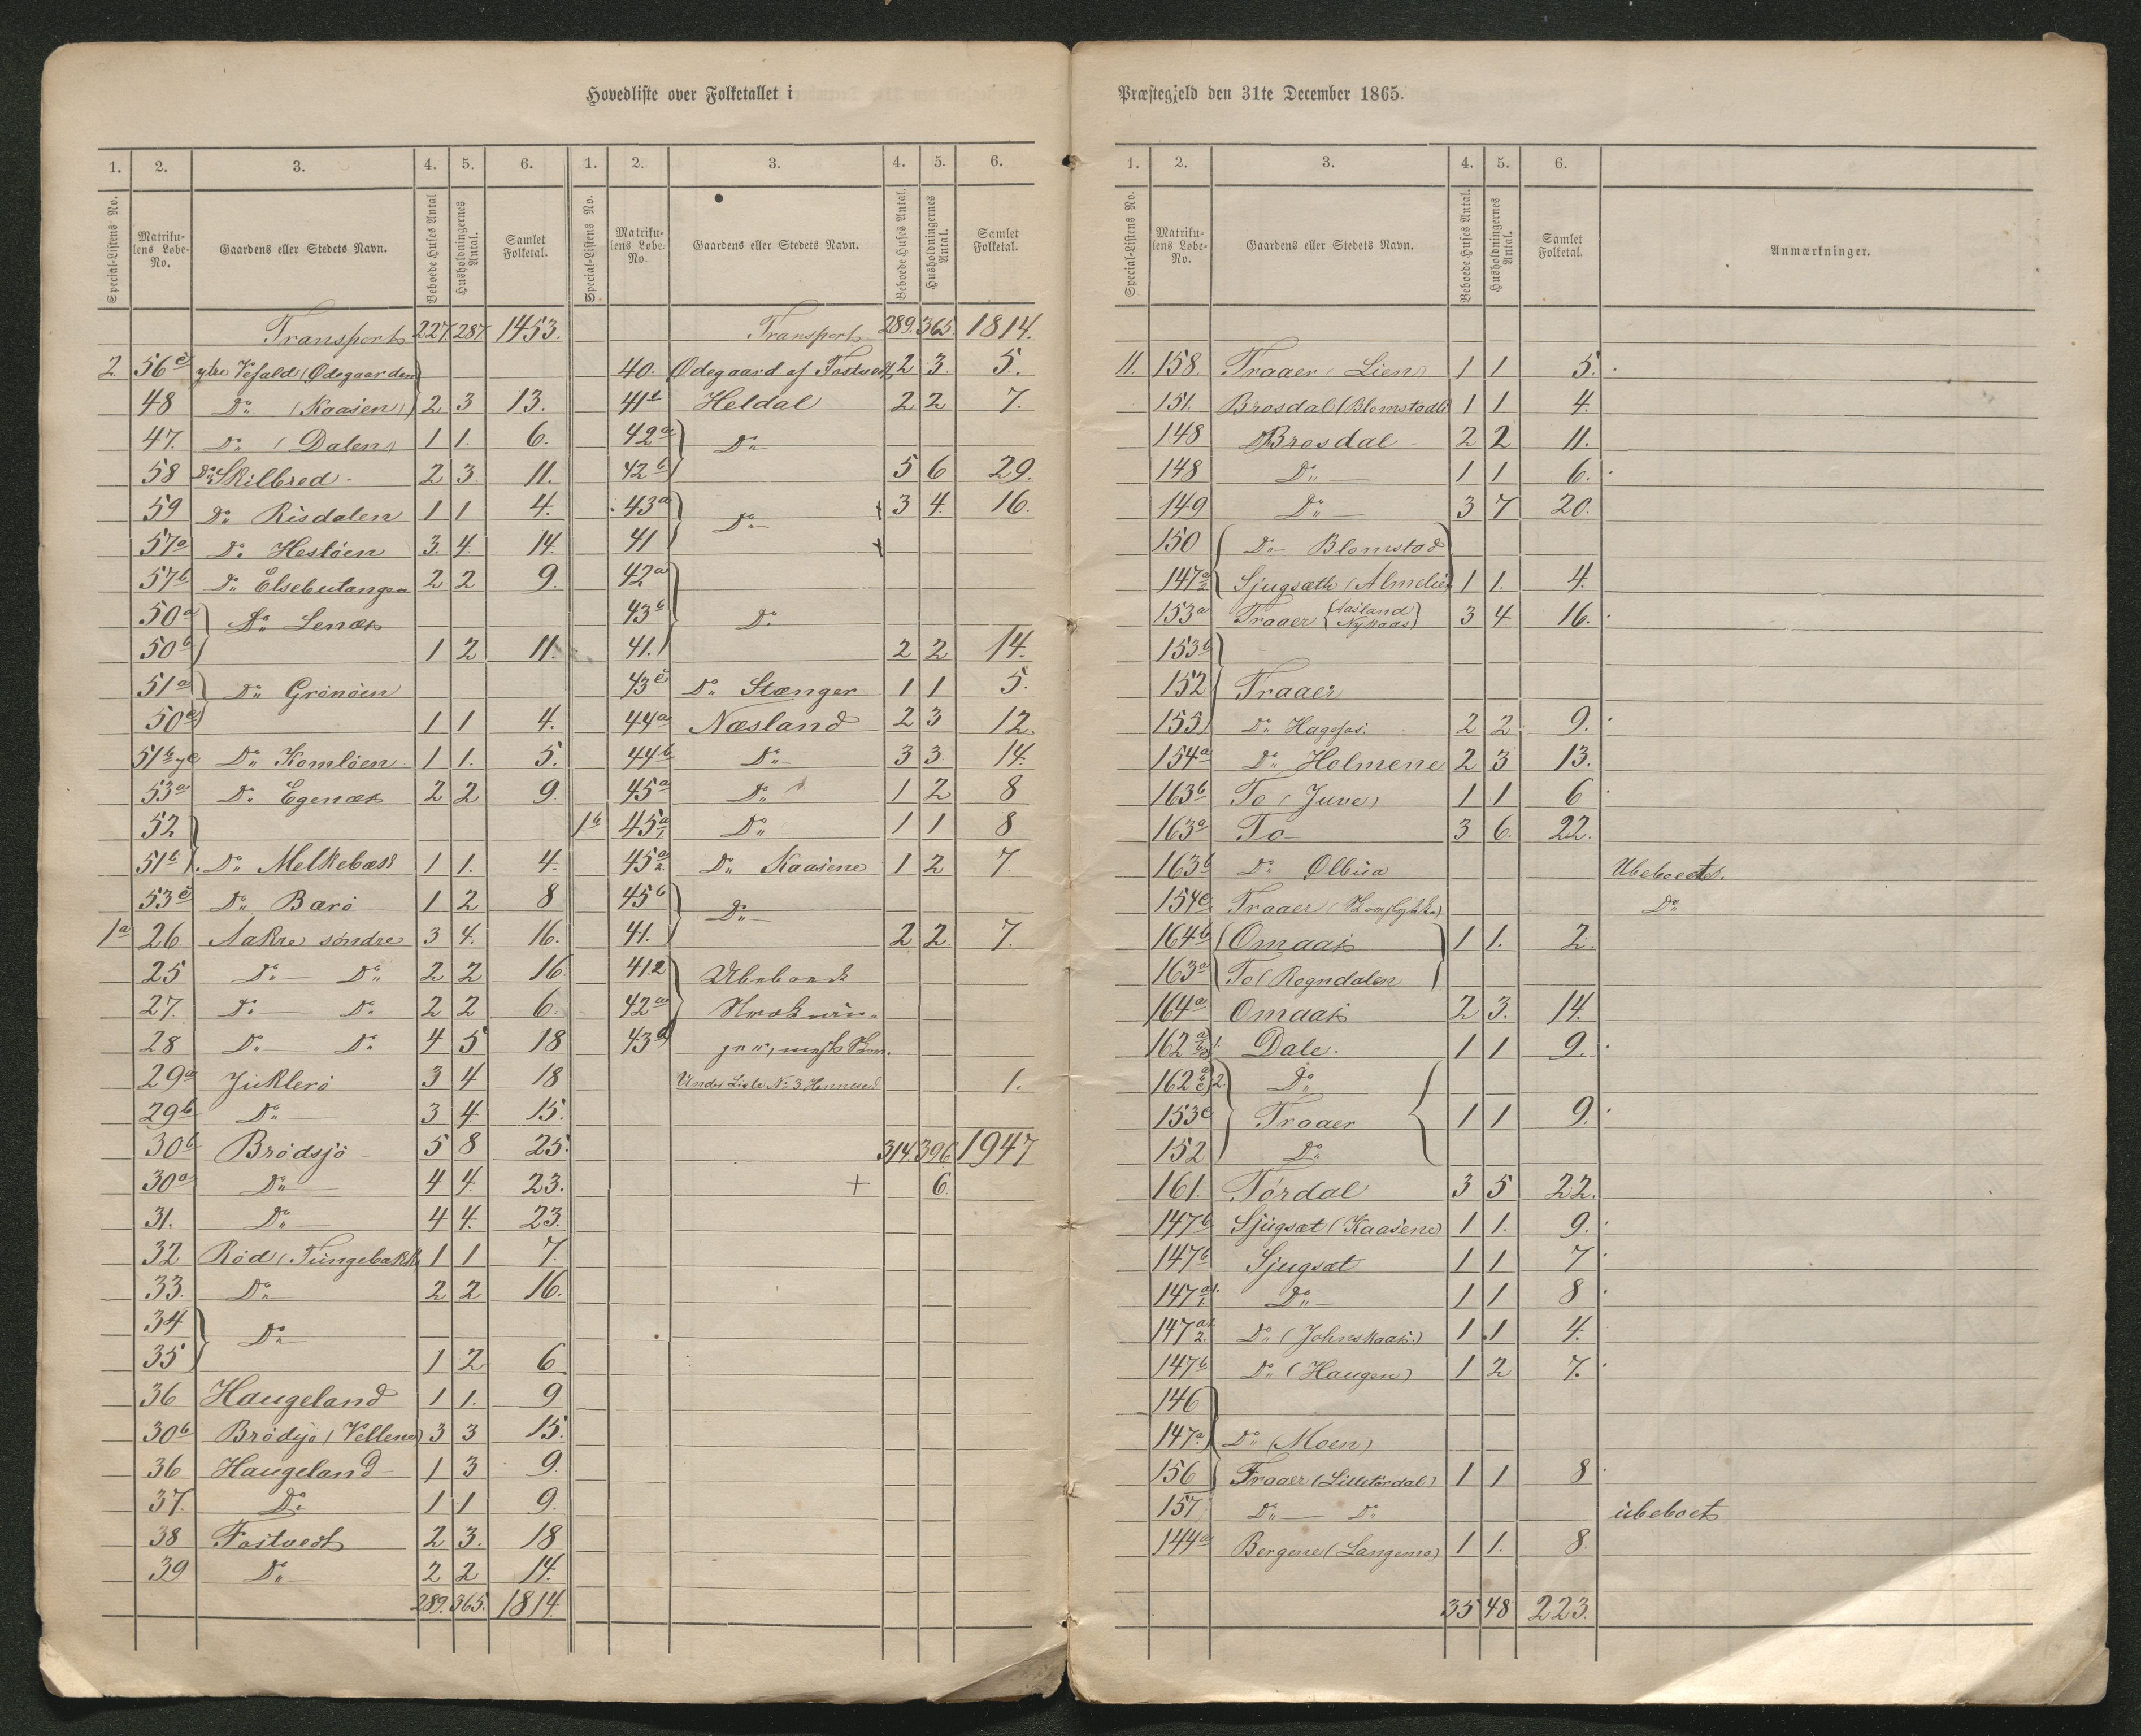 Hovedliste over Folketallet i
1. 2. 3. 4. 5. 6. 1. 2. 3. 4. 5. 6.
Special-Listens No. Matrikulens Løbe-No. Gaardens eller Stedets Navn. Beboede Huses Antal Husholdningernes Antal. Samlet Folketal. Special-Listens No. Matrikulens Løbe-No. Gaardens eller Stedets Navn. Beboede Huses Antal. Husholdningernes Antal. Samlet Folketal.
Transport 227. 287. 1453.
2 56c ytre Vefald (Ødegaarden)
48 Do (Kaasen) 2 3 13.
47. Do (Dalen) 1 1. 6.
58 Do Skilbred 2 3. 11.
59 Do Risdalen 1 1 4.
57a Do Hestöen 3. 4. 14.
57b Do Elsebutangen 2 2 9.
50a Do Lenæs
50b 1 2 11.
51a Do Grönöen
50a 1 1 4.
51b Do Komlöen 1 1. 5.
53a Do Egenæs 2 2 9
52
51b Do Melkebæk 1 1. 4.
53c Do Barö 1 2 8
1a 26 Aakre söndre 3 4. 16.
25 Do Do 2 2 16
27. Do Do 2 2 6.
28 Do Do 4 5 18
29a Juklerö 3 4 18
29b Do 3 4 15.
30b Brödsjö 5 8 25.
30a Do 4 4. 23.
31. Do 4 4. 23.
32 Röd (Tungebakk 1 1 7.
33. Do 2 2 16.
34 Do
35 1 2 6
36 Haugeland 1 1. 9
30b Brödsjö (Vellene) 3 3 15.
36 Haugeland 1 3 9.
37. Do 1 1 9.
38 Fostvedt 2 3. 18
39 Do 2 2 14.
289. 365. 1814.
Transport 289. 365. 1814.
40. Ødegaard af Fostvedt 2 3. 5.
41 Heldal 2 2 7.
42a Do
42b 5 6 29.
43a Do 3 4. 16.
41
42a
43b Do
41. 2 2 14.
43c Do Stænger 1 1 5.
44a Næsland 2 3 12.
44b Do 3 3 14.
45a Do 1 2 8
1b 45a1 Do 1 1 8
45a2. Do Kaasene 1 2 7.
45b Do
41. 2 2. 7.
412 Ubeboed
42a
43d
Under Liste No 3 Hennseid 1.
314. 396 1947
+ 6.
Præstegjeld den 31te December 1865.
1. 2. 3. 4. 5. 6.
Special-Listens No. Matrikulens Løbe-No. Gaardens eller Stedets Navn. Beboede Huses Antal. Husholdningernes Antal. Samlet Folketal. Anmærkninger.
11. 158. Traaer (Lien) 1 1 5.
151. Brosdal (Blomstadli 1 1 4.
148 Brosdal 2 2 11.
148 Do 1 1 6.
149 Do 3 7 20.
150 Do Blomstad
147a2 Sjugsæth (Almelien 1 1. 4.
153a Traaer (Aasland Nykaas) 3 4 16.
153b
152 Traaer
155 Do 2 2 9.
154a Do Holmene 2 3 13.
163b To (Juve) 1 1 6
163a To 3 6. 22.
163b Do Ølbua Ubeboet.
154c Traaer Do
164b Omaas 1 1. 2.
163a To (Rogndalen
164a Omaas 2 3. 14.
162 1. Dale. 1 1 9.
162 2. Do
153c Traaer 1 1 9.
152 Do
161. Tördal 3 5 22.
147b Sjugsæt (Kaasene) 1 1. 9.
147b Sjugsæt 1 1 7
147a1 Do 1 1 8
147a2. Do (Johnskaas) 1 1 4.
147b Do (Haugen) 1 2 7.
146
147a. Do (Moen)
156 Traaer (Lilletördal) 1 1 8
157 Do Do ubeboet
144a Bergene (Langemo) 1 1. 8.
35 48 223.